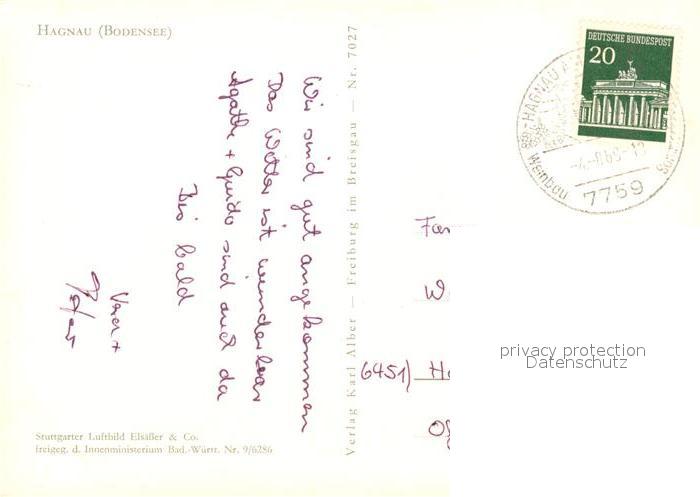 HAGNAU (BODENSEE)
Wir sind gut angekommen
Das Wetter ist wunderbar
Agathe + Guido sind auch da
Bis bald
Vera +
Peter
Stuttgarter Luftbild Elsäßer & Co.
freigeg. d. Innenministerium Bad.-Württ. Nr. 9/6286
Verlag Karl Alber — Freiburg im Breisgau — Nr. 7027
DEUTSCHE BUNDESPOST
20
HAGNAU
Weinbau
7759
Fam
W
6451) Ha
privacy protection
Datenschutz